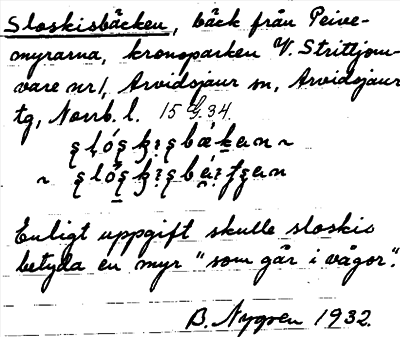 Sloskisbäcken, bäck från Peive-
myrarna, kronoparken V. Strittjom-
vare nr 1, Arvidsjaur sn, Arvidsjaur
tg, Norrb. l. 15 34.
Enligt uppgift skulle sloskis
betyda en myr "som går i vågor".
B. Nygren 1932.